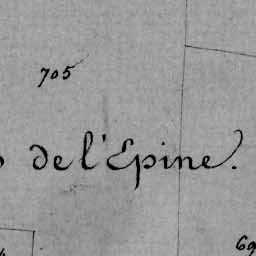 705
de l'Epine.
69